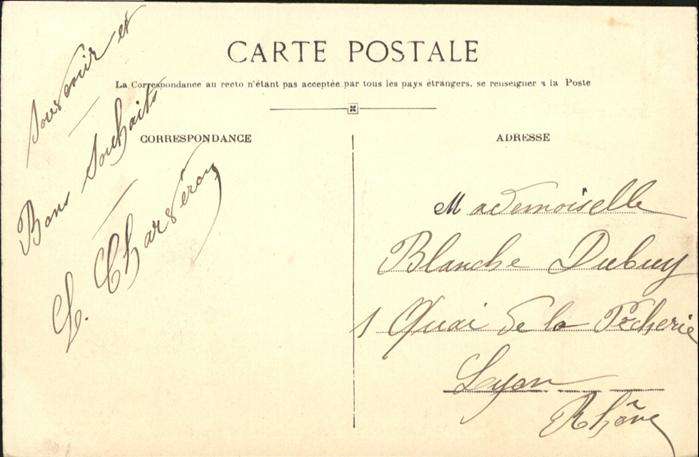 CARTE POSTALE
La Correspondance au recto n'étant pas acceptée par tous les pays étrangers, se renseigner à la Poste
CORRESPONDANCE
Souvenir et
Bons Souhaits
L. Charvéron
ADRESSE
Mademoiselle
Blanche Dubuy
1 Quai de la Pêcherie
Lyon
Rhône